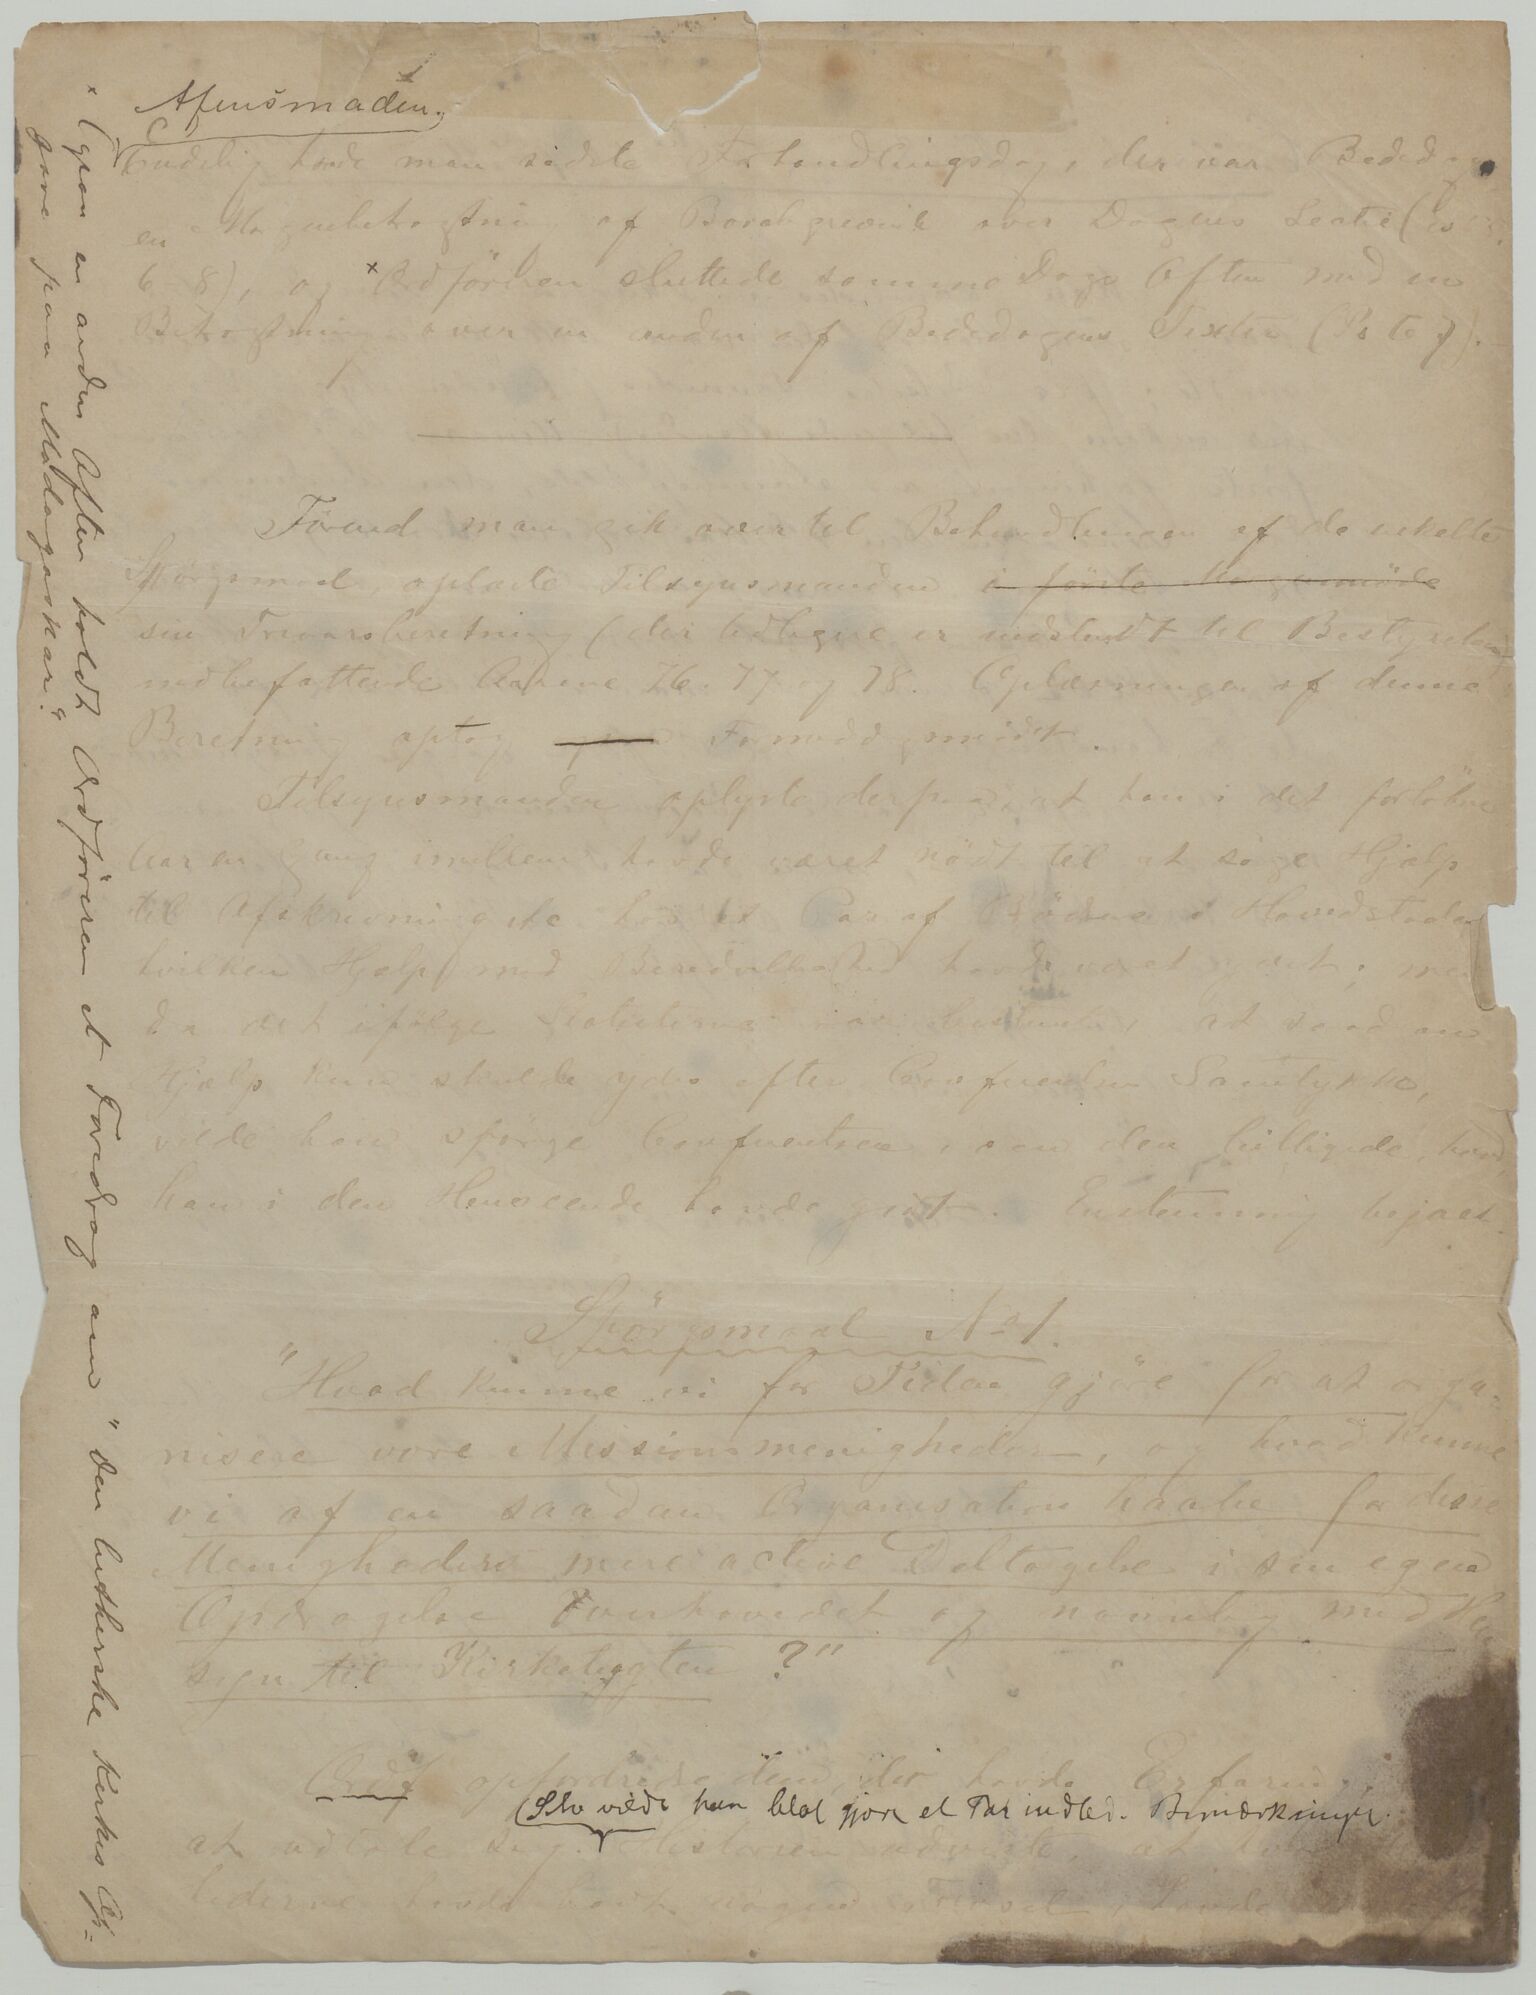 Endelig havde man sidste Forhandlingsdag, der var Bededag
en Morgenbetragtning af Borchgrevink over Dagens Lectie (Es
6-8), og × Ordföreren sluttede samme Dags Aften med en
Betragtning over en anden af Bededagens Texter (Ps
Förend man gik over til Behandlingen af de enkelte
Spörgsmaal oplæste Tilsynsmanden i förste
sin Treaarsberetning (der tidligere er indsendt til Bestyrelsen)
indbefattende Aarene 76. 77 og 78. Oplæsningen af denne
Beretning optog Formiddagsmödet.
Tilsynsmanden oplyste derpaa, at han i det forlöbne
Aar en Gang imellem havde været nödt til at söge Hjælp
til Afskrivning etc. hos et Par af Brödrene i Hovedstaden
hvilken Hjælp med Beredvillighed havde været ydet; men
da det ifölge Statuterne var bestemt, at saadan
Hjælp kun skulde ydes efter Conferentsens Samtykke,
vilde han spörge Conferentsen, om den billigede, hvad
han i den Henseende havde gjort. Enstemmig bejaet.
Spörgsmaal No 1.
"Hvad kunne vi for Tiden gjöre for at orga-
nisere vore Missionsmenigheder, og hvad kunne
vi af en saadan Organisation haabe for disse
Menigheders mere active Deltagelse i sin egen
Opdragelse overhovedet og navnlig med Hen
syn til Kirketugten ?"
Ordf opfordrede dem, der havde Erfaring,
(Selv vilde han blot gjøre et Par indled. Bemærkninger.
at udtale sig. Historien udviste, at
lederne havde havt nogen
× (paa en anden Aften holdt Ordföreren et Foredrag om "den lutherske Kirkes Op-
gave paa Madagaskar."